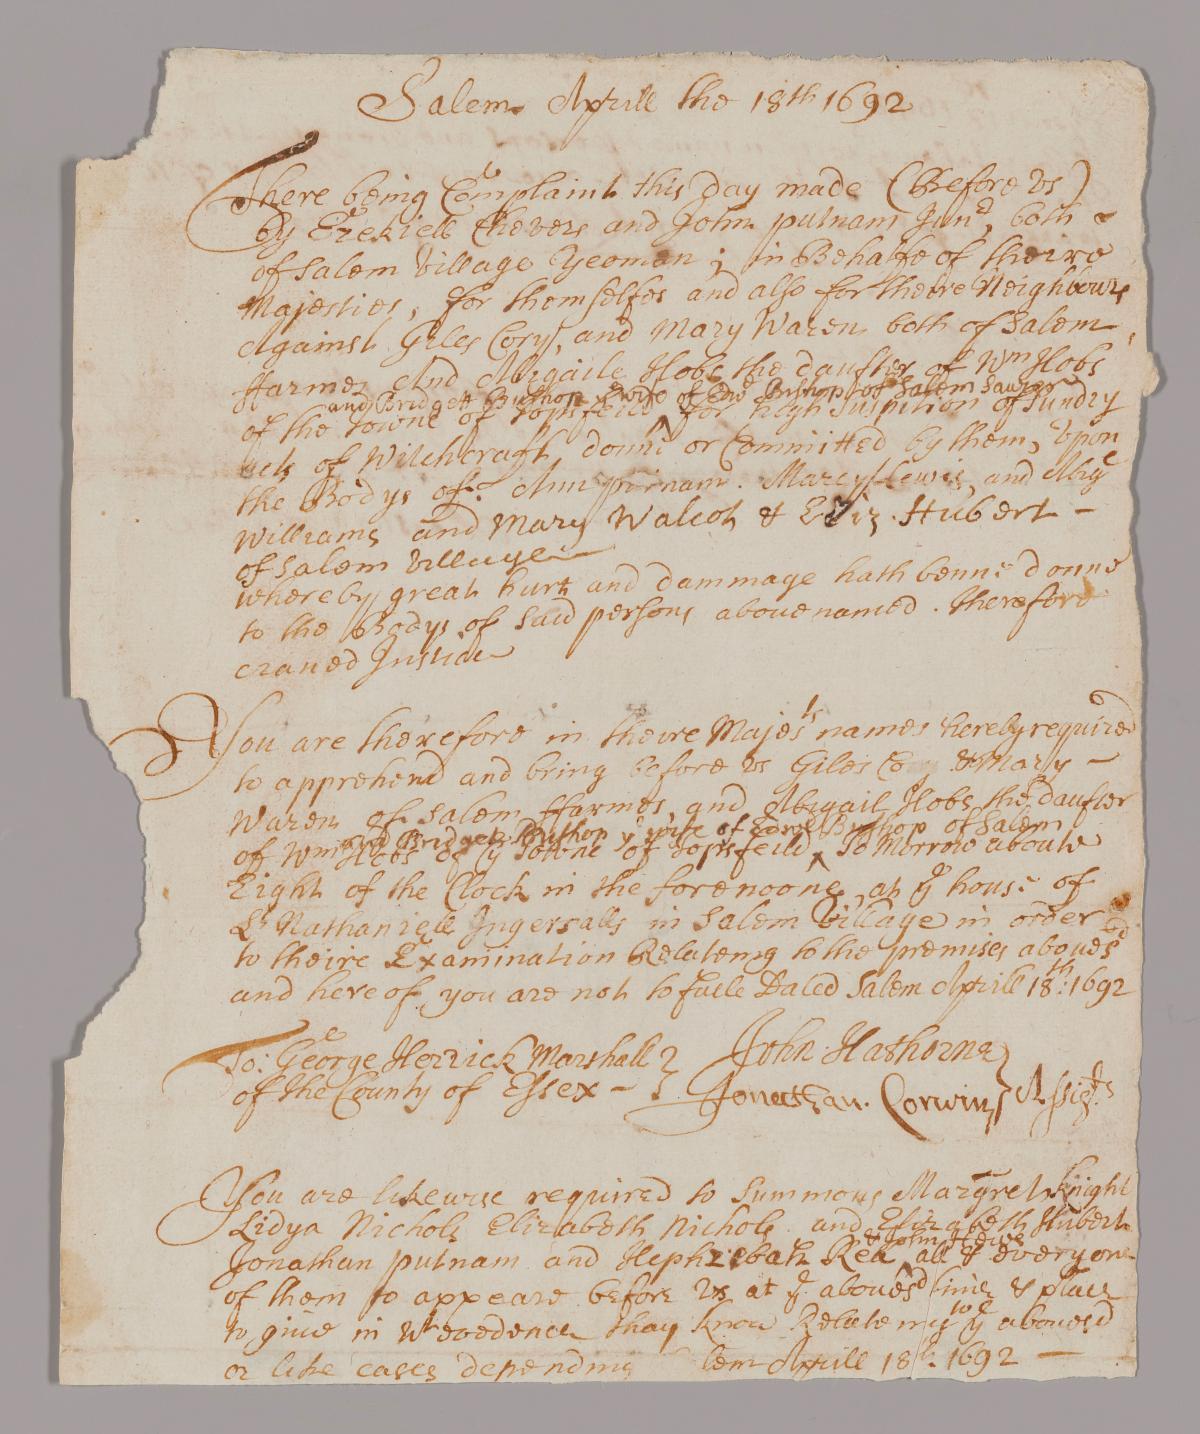 Salem Aprill the 18th 1692
There being Complaint this day made (Before vs)
by Ezekiell Chevers and John putnam Junr both
of Salem Village Yeoman; in Behalfe of theire
Majesties, for themselfes and also for theire Neighbours
Against Giles Cory, and Mary Waren both of Salem
ffarmes And Abigaile Hobs the daufter of Wm Hobs
and Bridgett Bushop ye wife of Edwd Bishop of Salem Sawyer
of the towne of Topsfeild ^ for high Suspition of Sundry
acts of Witchcraft, donne or Committed by them, Upon
the Bodys of: Ann putnam. Marcy Lewis, and Abige
Williams and Mary Walcot & Eliz. Hubert -
of Salem Village
whereby great hurt and dammage hath benne donne
to the Bodys of said persons above named. therefore
craued Justice
You are therefore in theire Majests names hereby required
to apprehend and bring before vs Giles Co & Mary -
Waren of Salem ffarmes, and Abigail Hobs the daufter
and Bridget Bushop ye wife of Edwd Bushop of Salem
of Wm Hobs of ye Towne of Topsfeild ^ To Morrow aboute
Eight of the Clock in the forenoone, at ye house of
Lt Nathaniell Ingersalls in Salem Village in order
to theire Examination Relateing to the premises abouesd
and hereof you are not to faile Dated Salem Aprill 18th 1692
To: George Herrick Marshall
of the County of Essex -
John Hathorne
Jonathan. Corwin
Assists
You are likewise required to Summons Margret Knight
Lidya Nichols Elizabeth Nichols and Elizabeth Hubert
& John Hewe
Jonathan putnam and Hephzibah Rea ^ all & euery one
of them to appeare before vs at ye abouesd time & place
to giue in wt euedence thay know Relateing to ye abouesd
or like cases depending lem Aprill 18th 1692 —